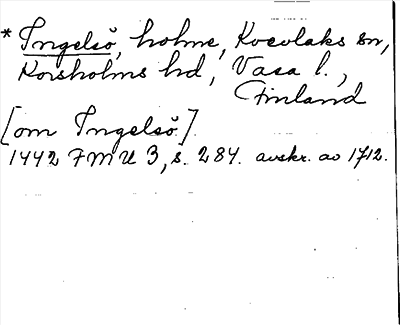 * Ingelsö, holme, Koevlaks sn,
Korsholms hd, Vasa l.,
Finland
[om Ingelsö.]
1442 FMU 3, s. 284. avskr. av 1712.